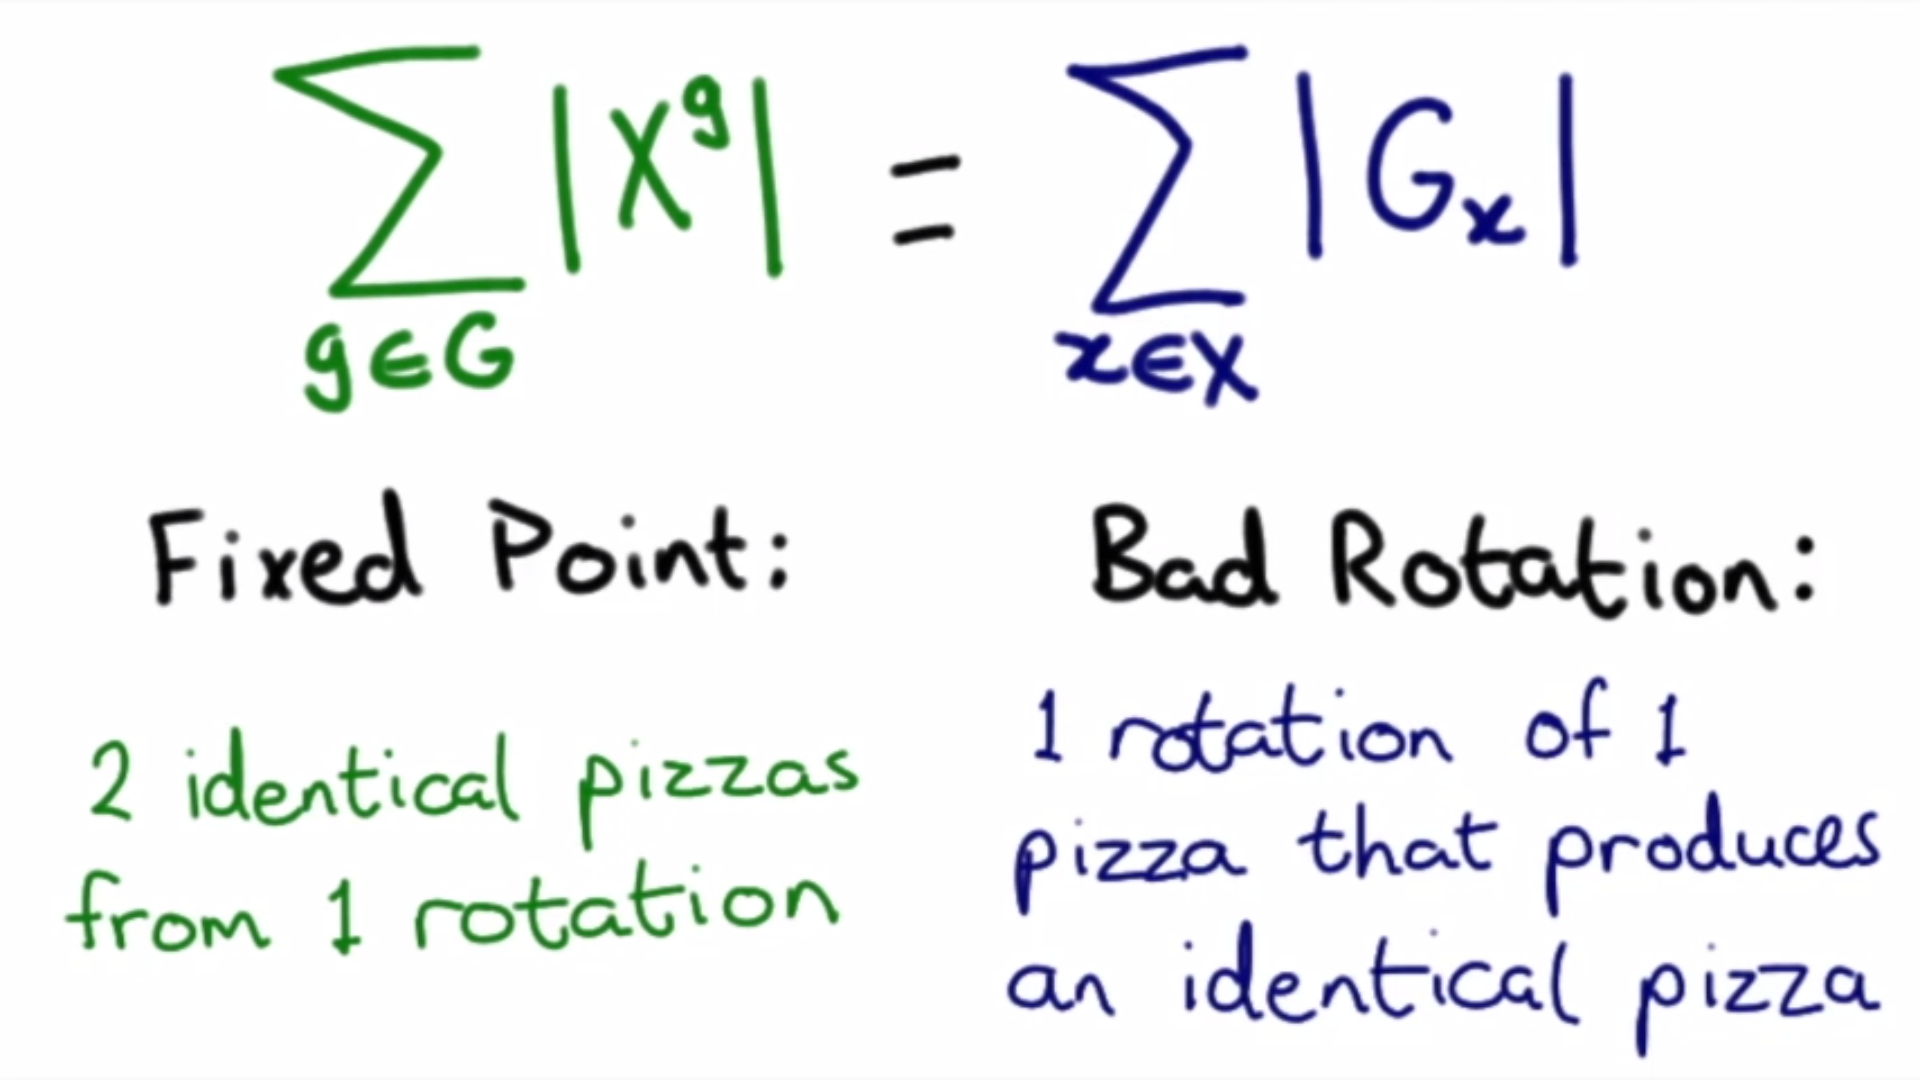 ∑ |X^g| = ∑ |G_x|
g∈G x∈X
Fixed Point:
2 identical pizzas
from 1 rotation
Bad Rotation:
1 rotation of 1
pizza that produces
an identical pizza